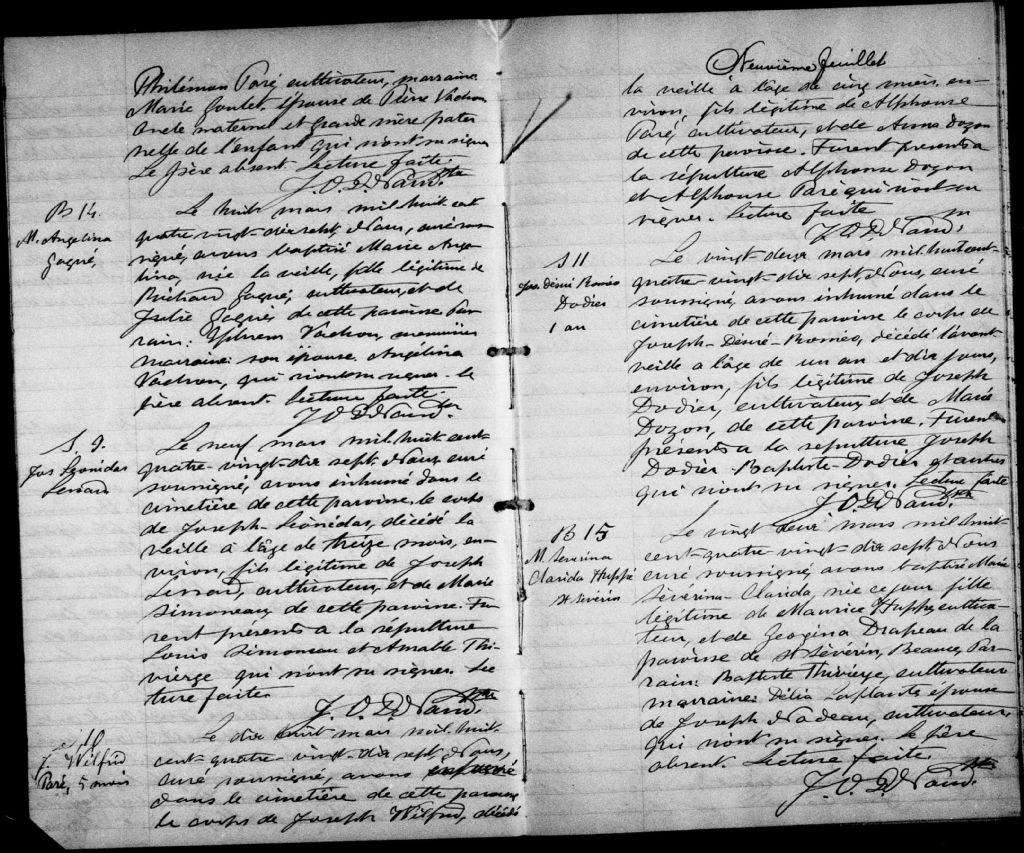 Philémon Paré, cultivateur, marraine
Marie Goulet, épouse de Pierre Vachon,
oncle maternel et grande mère pater
nelle de l'enfant qui n'ont su signer
Le père absent. Lecture faite.
J.O.D. Naud. Ptre
B 14.
M. Angélina
Gagné,
Le huit mars mil huit cent
quatre vingt-dix sept, Nous, curé sous
signé, avons baptisé Marie Ange
lina, née la veille, fille légitime de
Richard Gagné, cultivateur, et de
Julie Jacques de cette paroisse Par
rain: Ephrem Vachon, menuisier
marraine: son épouse Angélina
Vachon, qui n'ont su signer. Le
père absent. Lecture faite.
J.O.D. Naud. Ptre
S. 9.
Jos Léonidas
Lessard
Le neuf mars mil huit cent-
quatre-vingt-dix sept, Nous curé
soussigné, avons inhumé dans le
cimetière de cette paroisse, le corps
de Joseph-Léonidas, décédé la
veille à l'âge de treize mois, en-
viron, fils légitime de Joseph
Lessard, cultivateur, et de Marie
Simoneau de cette paroisse. Fu
rent présents à la sépulture
Louis Simoneau et Amable Thi-
vierge qui n'ont su signer. Lec
ture faite.
J.O.D. Naud. Ptre
S. 10
J. Wilfrid
Paré, 5 mois
Le dix huit mars mil huit
cent-quatre-vingt-dix sept, Nous,
curé soussigné, avons inhumé
dans le cimetière de cette paroisse
le corps de Joseph Wilfrid, décédé
Neuvième feuillet
la veille à l'âge de cinq mois, en-
viron, fils légitime de Alphonse
Paré, cultivateur, et de Anna Dozon
de cette paroisse. Furent présents a
la sépulture Alphonse Dozon
et Alphonse Paré qui n'ont su
signer. Lecture faite
J.O.D. Naud. Ptre
S 11
Jos. Désiré Roméo
Dodier
1 an
Le vingt-deux mars mil huit cent-
quatre-vingt-dix sept, Nous, curé
soussigné, avons inhumé dans le
cimetière de cette paroisse le corps de
Joseph-Desiré-Roméo, décédé l'avant
veille à l'âge de un an et dix jours,
environ, fils légitime de Joseph
Dodier, cultivateur, et de Marie
Dozon, de cette paroisse. Furent
présents a la sépulture Joseph
Dodier Baptiste Dodier et autres
qui n'ont su signer. Lecture faite
J.O.D. Naud. Ptre
B 15
M. Séverina
Clarida Huppé
St Séverin
Le vingt deux mars mil huit
cent-quatre vingt-dix sept, Nous
curé soussigné, avons baptisé Marie
Séverina-Clarida, née ce jour fille
légitime de Maurice Huppé, cultiva-
teur, et de Georgina Drapeau de la
paroisse de St Séverin, Beauce, Par-
rain: Baptiste Thivierge, cultivateur
marraine: Délia Laplante, épouse
de Joseph Nadeau, cultivateur,
qui n'ont su signer. Le père
absent. Lecture faite.
J.O.D. Naud. Ptre